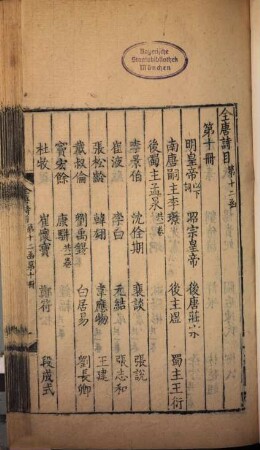 Bayerische
Staatsbibliothek
München
全唐詩目 第十二函
第十冊
明皇帝以下詞 昭宗皇帝 後唐莊宗
南唐嗣主李璟 後主煜 蜀主王衍
後蜀主孟昶共一卷
李景伯 沈佺期 裴談 張說
崔液 李白 元結 張志和
張松齡 韓翃 韋應物 王建
戴叔倫 劉禹錫 白居易 劉長卿
竇宏餘 康駢共一卷
杜牧 崔懷寶 鄭符 段成式
第十二函第十冊